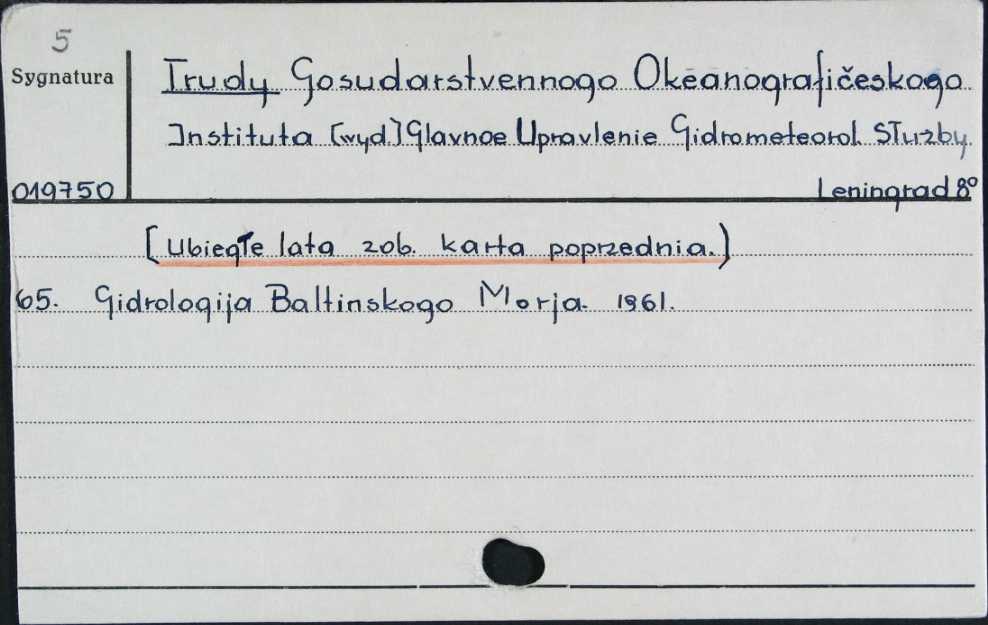 5
Sygnatura
Trudy Gosudarstvennogo Okeanografičeskogo
Instituta [wyd.] Glavnoe Upravlenie Gidrometeorol. Służby.
019750
Leningrad 8°
[Ubiegłe lata zob. karta poprzednia.]
65. Gidrologija Baltinskogo Morja. 1961.